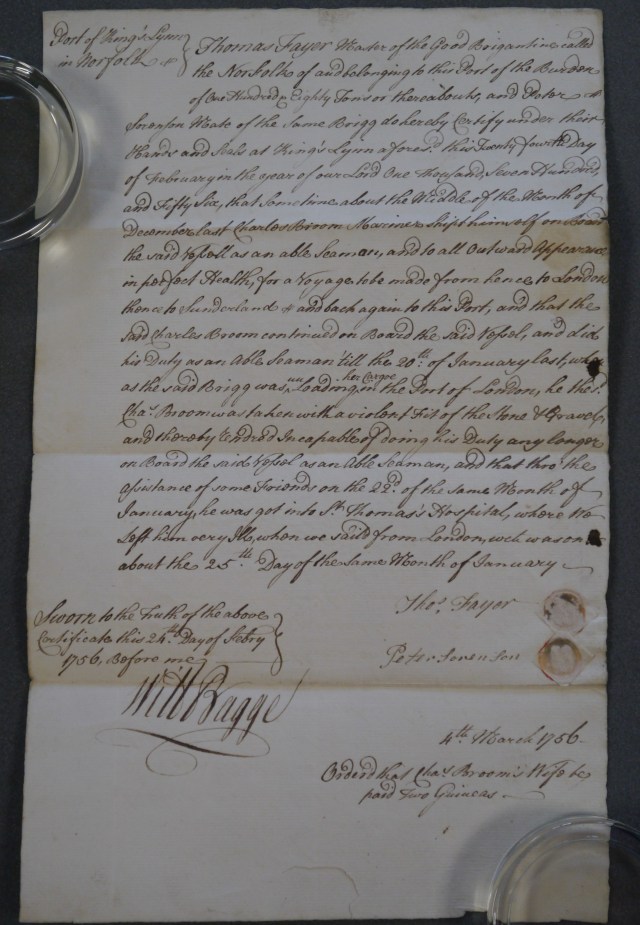 Port of King's Lynn
in Norfolk
Thomas Fayer Master of the Good Brigantine called
the Norfolk of and belonging to this Port of the Burden
of One Hundred & Eighty Tons or thereabouts, and Peter
Swenson Mate of the Same Brigg do hereby Certify under their
Hands and Seals at King's Lynn afores.d this Twenty fourth Day
of February in the year of our Lord One Thousand, Seven Hundred,
and Fifty Six, that Some time about the Middle of the Month of
December last Charles Broom Mariner shipt himself on Board
the said Vessell as an able Seaman, and to all Outward Appearance
in perfect Health, for a Voyage to be made from hence to London
thence to Sunderland & and back again to this Port, and that the
said Charles Broom continued on Board the said Vessel, and did
his Duty as an Able Seaman 'till the 20th of January last, when
as the said Brigg was un Loading her Cargoe in the Port of London, he the s.d
Cha.s Broom was taken with a violent Fit of the Stone & Gravel,
and thereby rendred Incapable of doing his Duty any longer
on Board the said Vessel as an Able Seaman, and that thro' the
assistance of some Friends on the 22.d of the same Month of
January, he was got into St. Thomas's Hospital, where We
Left him very Ill, when we sail'd from London, wch was on or
about the 25.th Day of the Same Month of January
Tho.s Fayer
Sworn to the Truth of the above
Certificate this 24.th Day of Febry
1756, Before me
Peter Swenson
Will Bagge
4th March 1756
Orderd that Cha.s Broom's Wife be
paid Two Guineas